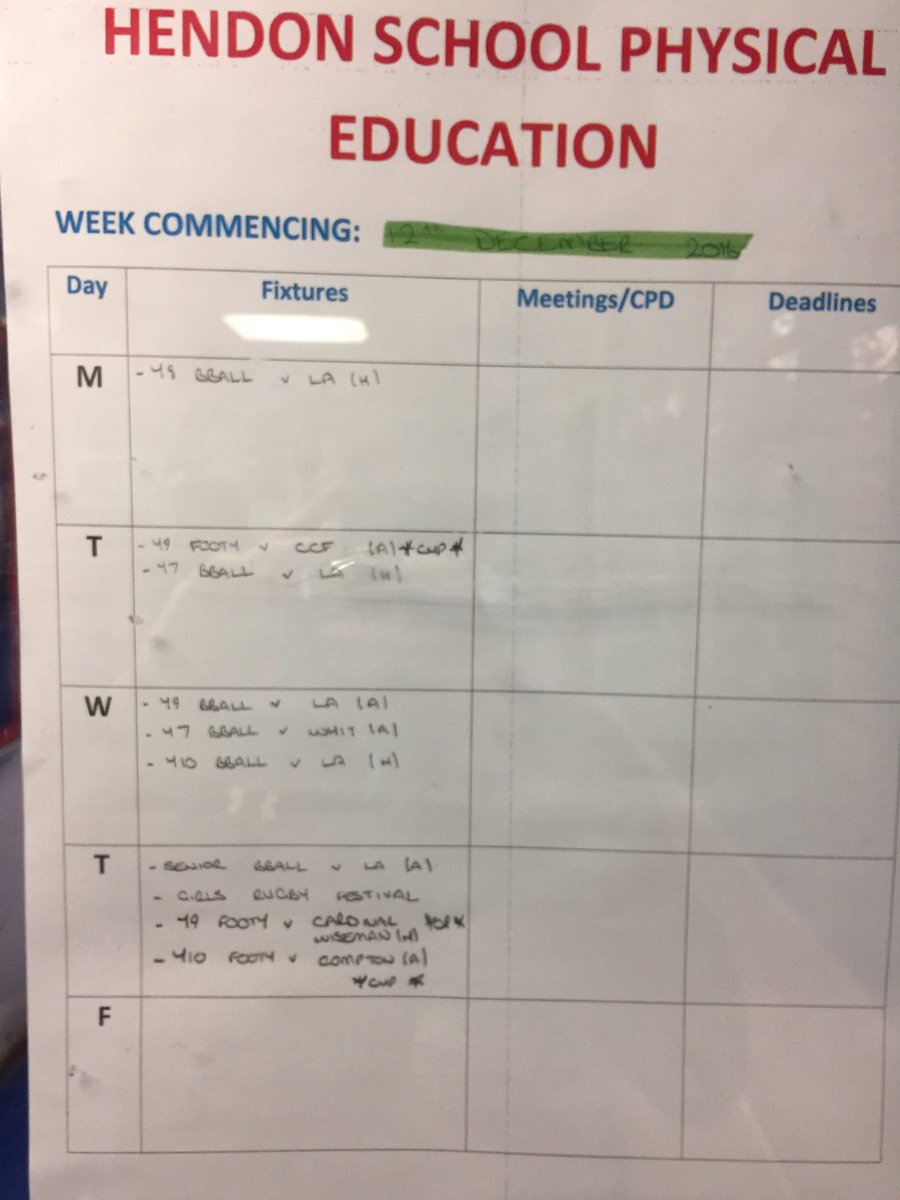 HENDON SCHOOL PHYSICAL
EDUCATION
WEEK COMMENCING: 12TH DECEMBER 2016
Day Fixtures Meetings/CPD Deadlines
M
- Y8 BBALL v LA (H)
T
- Y9 FOOTY v CCF (A) *CUP*
- Y7 BBALL v LA (H)
W
- Y9 BBALL v LA (A)
- Y7 BBALL v WHIT (A)
- Y10 BBALL v LA (H)
T
- SENIOR BBALL v LA (A)
- GIRLS RUGBY FESTIVAL
- Y9 FOOTY v CARDINAL *CUP*
WISEMAN (H)
- Y10 FOOTY v COMPTON (A)
*CUP*
F